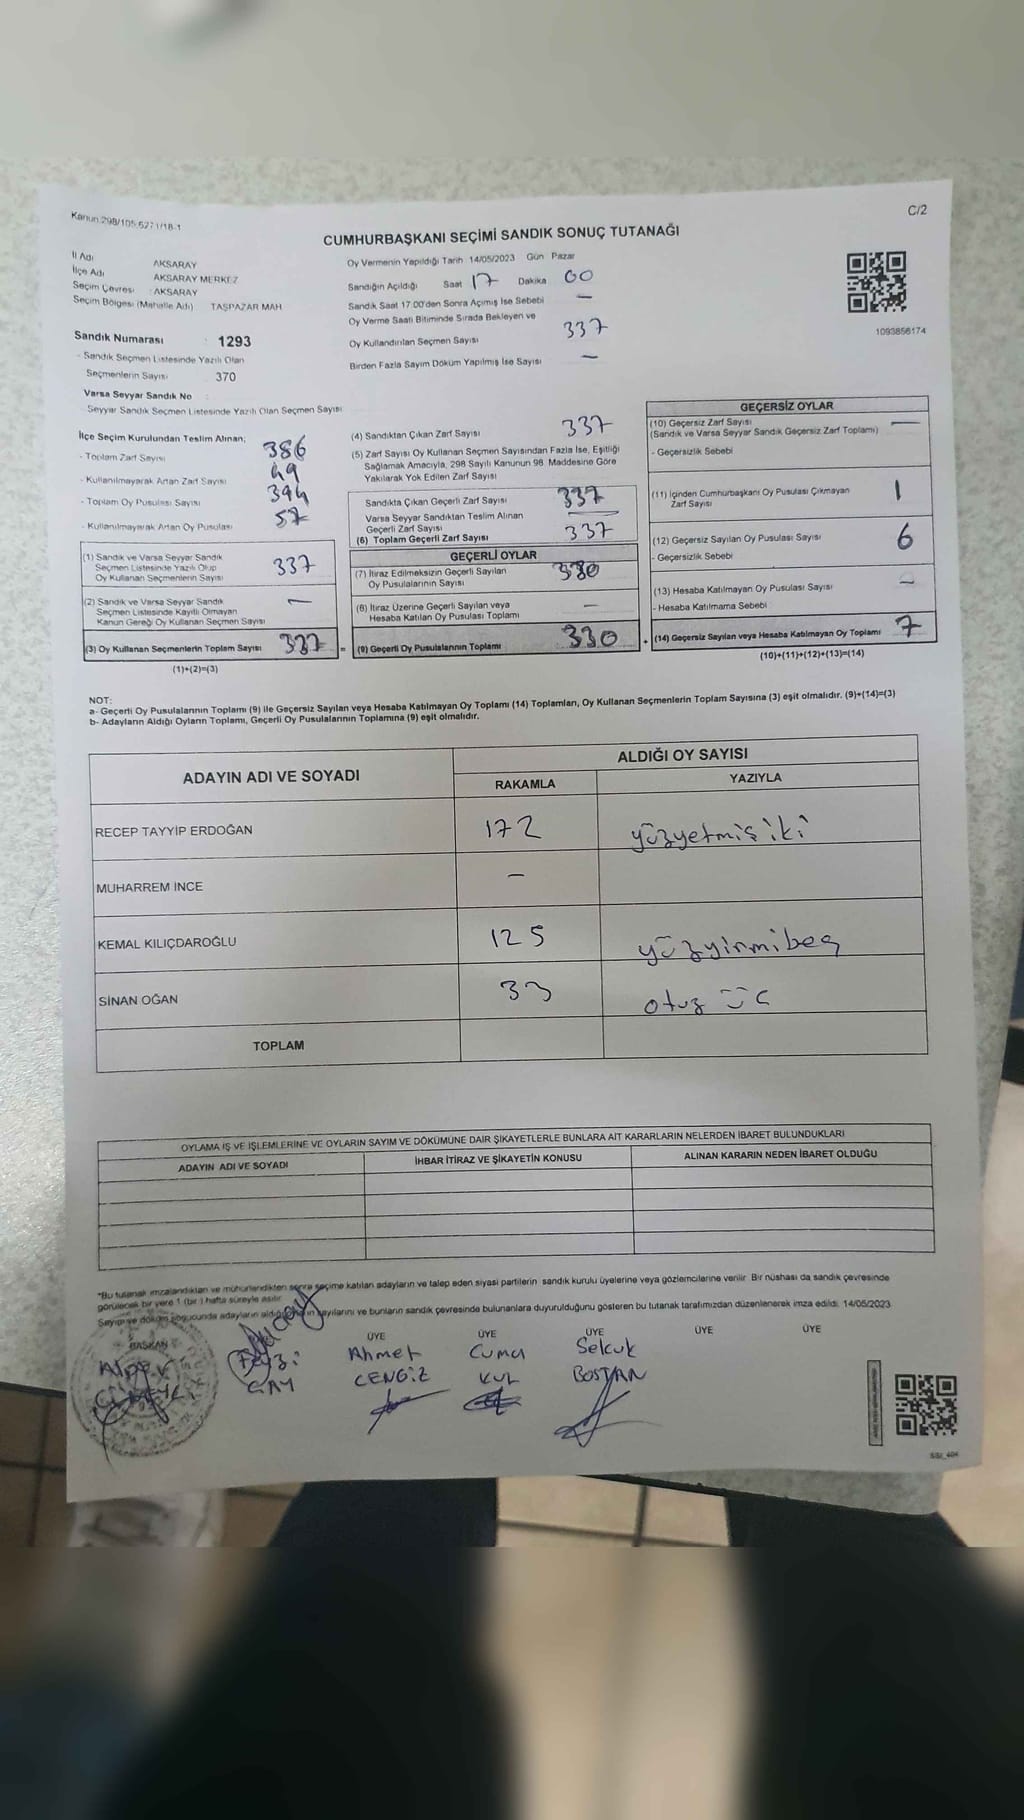 Kanun:298/105,6271/18-1
C/2
CUMHURBAŞKANI SEÇİMİ SANDIK SONUÇ TUTANAĞI
İl Adı AKSARAY
İlçe Adı AKSARAY MERKEZ
Seçim Çevresi : AKSARAY
Seçim Bölgesi (Mahalle Adı) TAŞPAZAR MAH
Oy Vermenin Yapıldığı Tarih 14/05/2023 Gün Pazar
Sandığın Açıldığı Saat 17 Dakika 00
Sandık Saat 17.00'den Sonra Açımış İse Sebebi –
Oy Verme Saati Bitiminde Sırada Bekleyen ve
Oy Kullandırılan Seçmen Sayısı 337
Birden Fazla Sayım Döküm Yapılmış İse Sayısı –
1093856174
Sandık Numarası : 1293
- Sandık Seçmen Listesinde Yazılı Olan
Seçmenlerin Sayısı 370
Varsa Seyyar Sandık No
- Seyyar Sandık Seçmen Listesinde Yazılı Olan Seçmen Sayısı
İlçe Seçim Kurulundan Teslim Alınan;
- Toplam Zarf Sayısı 386
- Kullanılmayarak Artan Zarf Sayısı 49
- Toplam Oy Pusulası Sayısı 394
- Kullanılmayarak Artan Oy Pusulası 57
(1) Sandık ve Varsa Seyyar Sandık
Seçmen Listesinde Yazılı Olup
Oy Kullanan Seçmenlerin Sayısı 337
(2) Sandık ve Varsa Seyyar Sandık
Seçmen Listesinde Kayıtlı Olmayan
Kanun Gereği Oy Kullanan Seçmen Sayısı –
(3) Oy Kullanan Seçmenlerin Toplam Sayısı 337 =
(1)+(2)=(3)
(4) Sandıktan Çıkan Zarf Sayısı 337
(5) Zarf Sayısı Oy Kullanan Seçmen Sayısından Fazla İse, Eşitliği
Sağlamak Amacıyla, 298 Sayılı Kanunun 98. Maddesine Göre
Yakılarak Yok Edilen Zarf Sayısı
Sandıkta Çıkan Geçerli Zarf Sayısı 337
Varsa Seyyar Sandıktan Teslim Alınan
Geçerli Zarf Sayısı –
(6) Toplam Geçerli Zarf Sayısı 337
GEÇERLİ OYLAR
(7) İtiraz Edilmeksizin Geçerli Sayılan
Oy Pusulalarının Sayısı 330
(8) İtiraz Üzerine Geçerli Sayılan veya
Hesaba Katılan Oy Pusulası Toplamı –
(9) Geçerli Oy Pusulalarının Toplamı 330 +
GEÇERSİZ OYLAR
(10) Geçersiz Zarf Sayısı
(Sandık ve Varsa Seyyar Sandık Geçersiz Zarf Toplamı) –
- Geçersizlik Sebebi
(11) İçinden Cumhurbaşkanı Oy Pusulası Çıkmayan
Zarf Sayısı 1
(12) Geçersiz Sayılan Oy Pusulası Sayısı 6
- Geçersizlik Sebebi
(13) Hesaba Katılmayan Oy Pusulası Sayısı –
- Hesaba Katılmama Sebebi
(14) Geçersiz Sayılan veya Hesaba Katılmayan Oy Toplamı 7
(10)+(11)+(12)+(13)=(14)
NOT:
a- Geçerli Oy Pusulalarının Toplamı (9) ile Geçersiz Sayılan veya Hesaba Katılmayan Oy Toplamı (14) Toplamları, Oy Kullanan Seçmenlerin Toplam Sayısına (3) eşit olmalıdır. (9)+(14)=(3)
b- Adayların Aldığı Oyların Toplamı, Geçerli Oy Pusulalarının Toplamına (9) eşit olmalıdır.
ADAYIN ADI VE SOYADI
ALDIĞI OY SAYISI
RAKAMLA YAZIYLA
RECEP TAYYİP ERDOĞAN 172 yüzyetmişiki
MUHARREM İNCE –
KEMAL KILIÇDAROĞLU 125 yüzyirmibeş
SİNAN OĞAN 33 otuz üç
TOPLAM
OYLAMA İŞ VE İŞLEMLERİNE VE OYLARIN SAYIM VE DÖKÜMÜNE DAİR ŞİKAYETLERLE BUNLARA AİT KARARLARIN NELERDEN İBARET BULUNDUKLARI
ADAYIN ADI VE SOYADI İHBAR İTİRAZ VE ŞİKAYETİN KONUSU ALINAN KARARIN NEDEN İBARET OLDUĞU
*Bu tutanak imzalandıktan ve mühürlendikten sonra seçime katılan adayların ve talep eden siyasi partilerin sandık kurulu üyelerine veya gözlemcilerine verilir. Bir nüshası da sandık çevresinde
görülecek bir yere 1 (bir) hafta süreyle asılır.
Sayım ve döküm sonucunda adayların aldığı oyların sayılarını ve bunların sandık çevresinde bulunanlara duyurulduğunu gösteren bu tutanak tarafımızdan düzenlenerek imza edildi. 14/05/2023
BAŞKAN ÜYE ÜYE ÜYE ÜYE ÜYE
Feyzi Ahmet Cuma Selcuk
GAY CENGİZ KUL BOSTAN